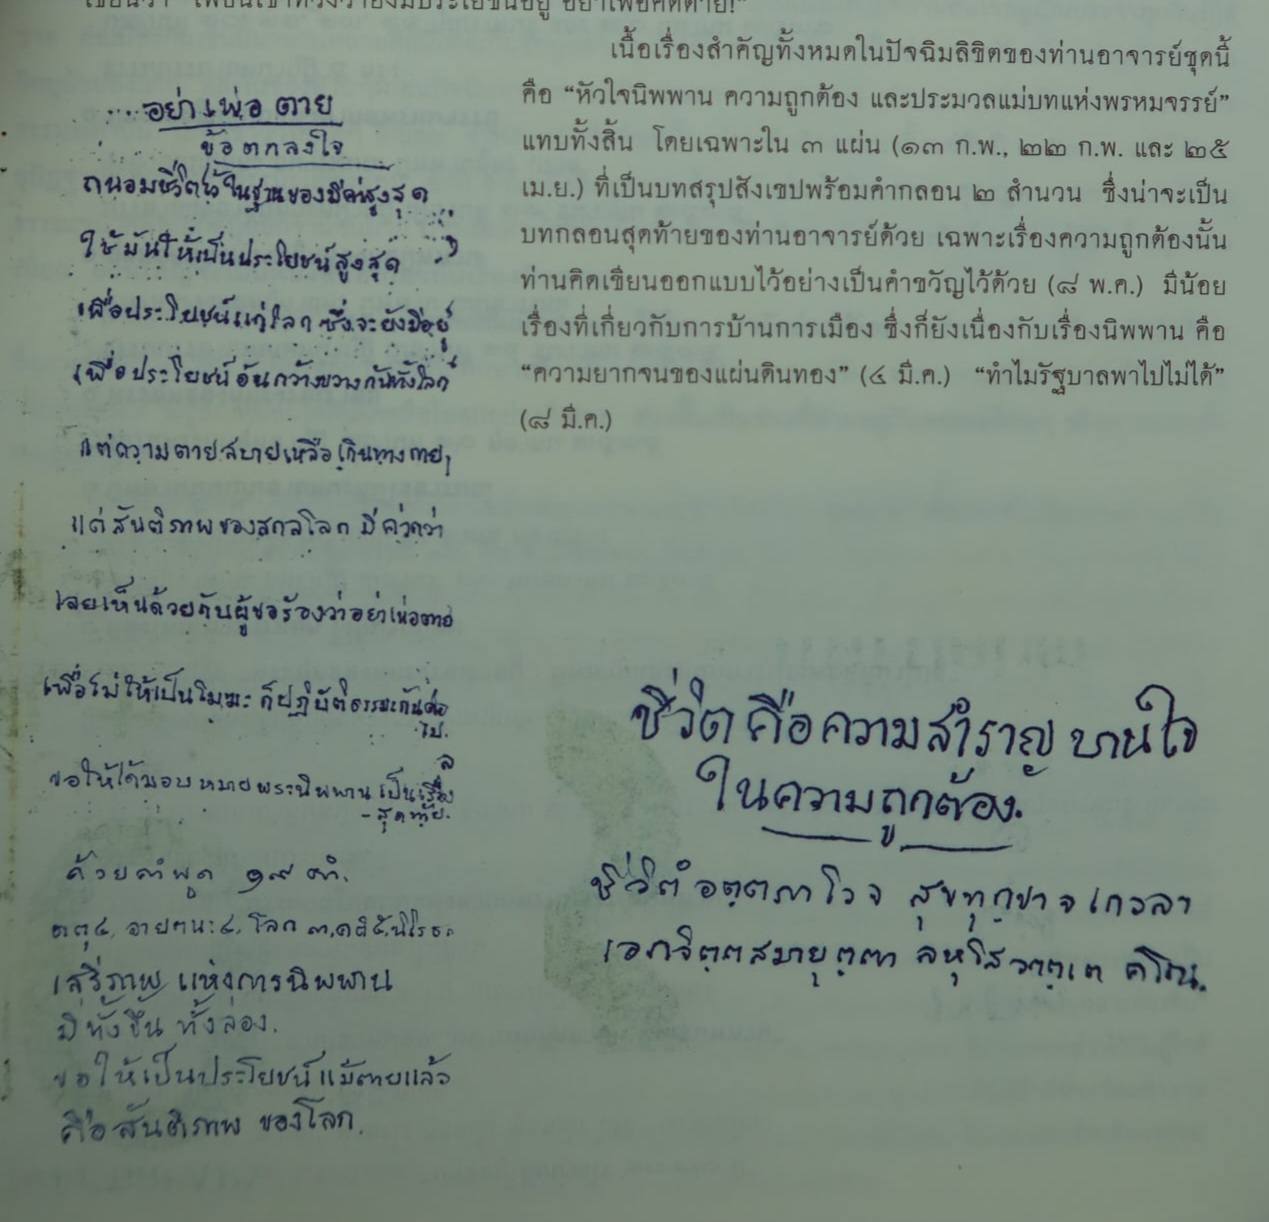 เขียนว่า “เพื่อนเขาทวงว่ายังมีประโยชน์อยู่ อย่าเพ่อคิดตาย!”
เนื้อเรื่องสำคัญทั้งหมดในปัจฉิมลิขิตของท่านอาจารย์ชุดนี้
คือ “หัวใจนิพพาน ความถูกต้อง และประมวลแม่บทแห่งพรหมจรรย์”
แทบทั้งสิ้น โดยเฉพาะใน ๓ แผ่น (๑๓ ก.พ., ๒๒ ก.พ. และ ๒๕
เม.ย.) ที่เป็นบทสรุปสังเขปพร้อมคำกลอน ๒ สำนวน ซึ่งน่าจะเป็น
บทกลอนสุดท้ายของท่านอาจารย์ด้วย เฉพาะเรื่องความถูกต้องนั้น
ท่านคิดเขียนออกแบบไว้อย่างเป็นคำขวัญไว้ด้วย (๘ พ.ค.) มีน้อย
เรื่องที่เกี่ยวกับการบ้านการเมือง ซึ่งก็ยังเนื่องกับเรื่องนิพพาน คือ
“ความยากจนของแผ่นดินทอง” (๔ มี.ค.) “ทำไมรัฐบาลพาไปไม่ได้”
(๘ มี.ค.)
อย่าเพ่อตาย
ข้อตกลงใจ
ถนอมชีวิตไว้ในฐานของมีค่าสูงสุด
ใช้มันให้เป็นประโยชน์สูงสุด
เพื่อประโยชน์แก่โลก ซึ่งจะยังมีอยู่
เพื่อประโยชน์อันกว้างขวางกันทั้งโลก
แต่ความตายสบายเหลือเกินทางกาย,
แต่สันติภาพของสกลโลก มีค่ากว่า
เลยเห็นด้วยกับผู้ขอร้องว่าอย่าเพ่อตาย
เพื่อไม่ให้เป็นโมฆะ ก็ปฏิบัติธรรมะกันต่อ
ไป.
ขอให้ได้มอบหมายพระนิพพาน เป็นเรื่อง
สุดท้าย.
ด้วยคำพูด ๑๙ คำ.
ธาตุ๔, อายตนะ๔, โลก ๓,
เสรีภาพ แห่งการนิพพาน
มีทั้งขึ้น ทั้งล่อง.
ขอให้เป็นประโยชน์แม้ตายแล้ว
คือสันติภาพ ของโลก.
ชีวิต คือความสำราญ บานใจ
ในความถูกต้อง.
ชีวิตํ อตฺตภาโว จ สุขทุกฺขา จ เกวลา
เอกจิตฺตสมายุตฺตา ลหุโส วตฺตเต ขโณ.